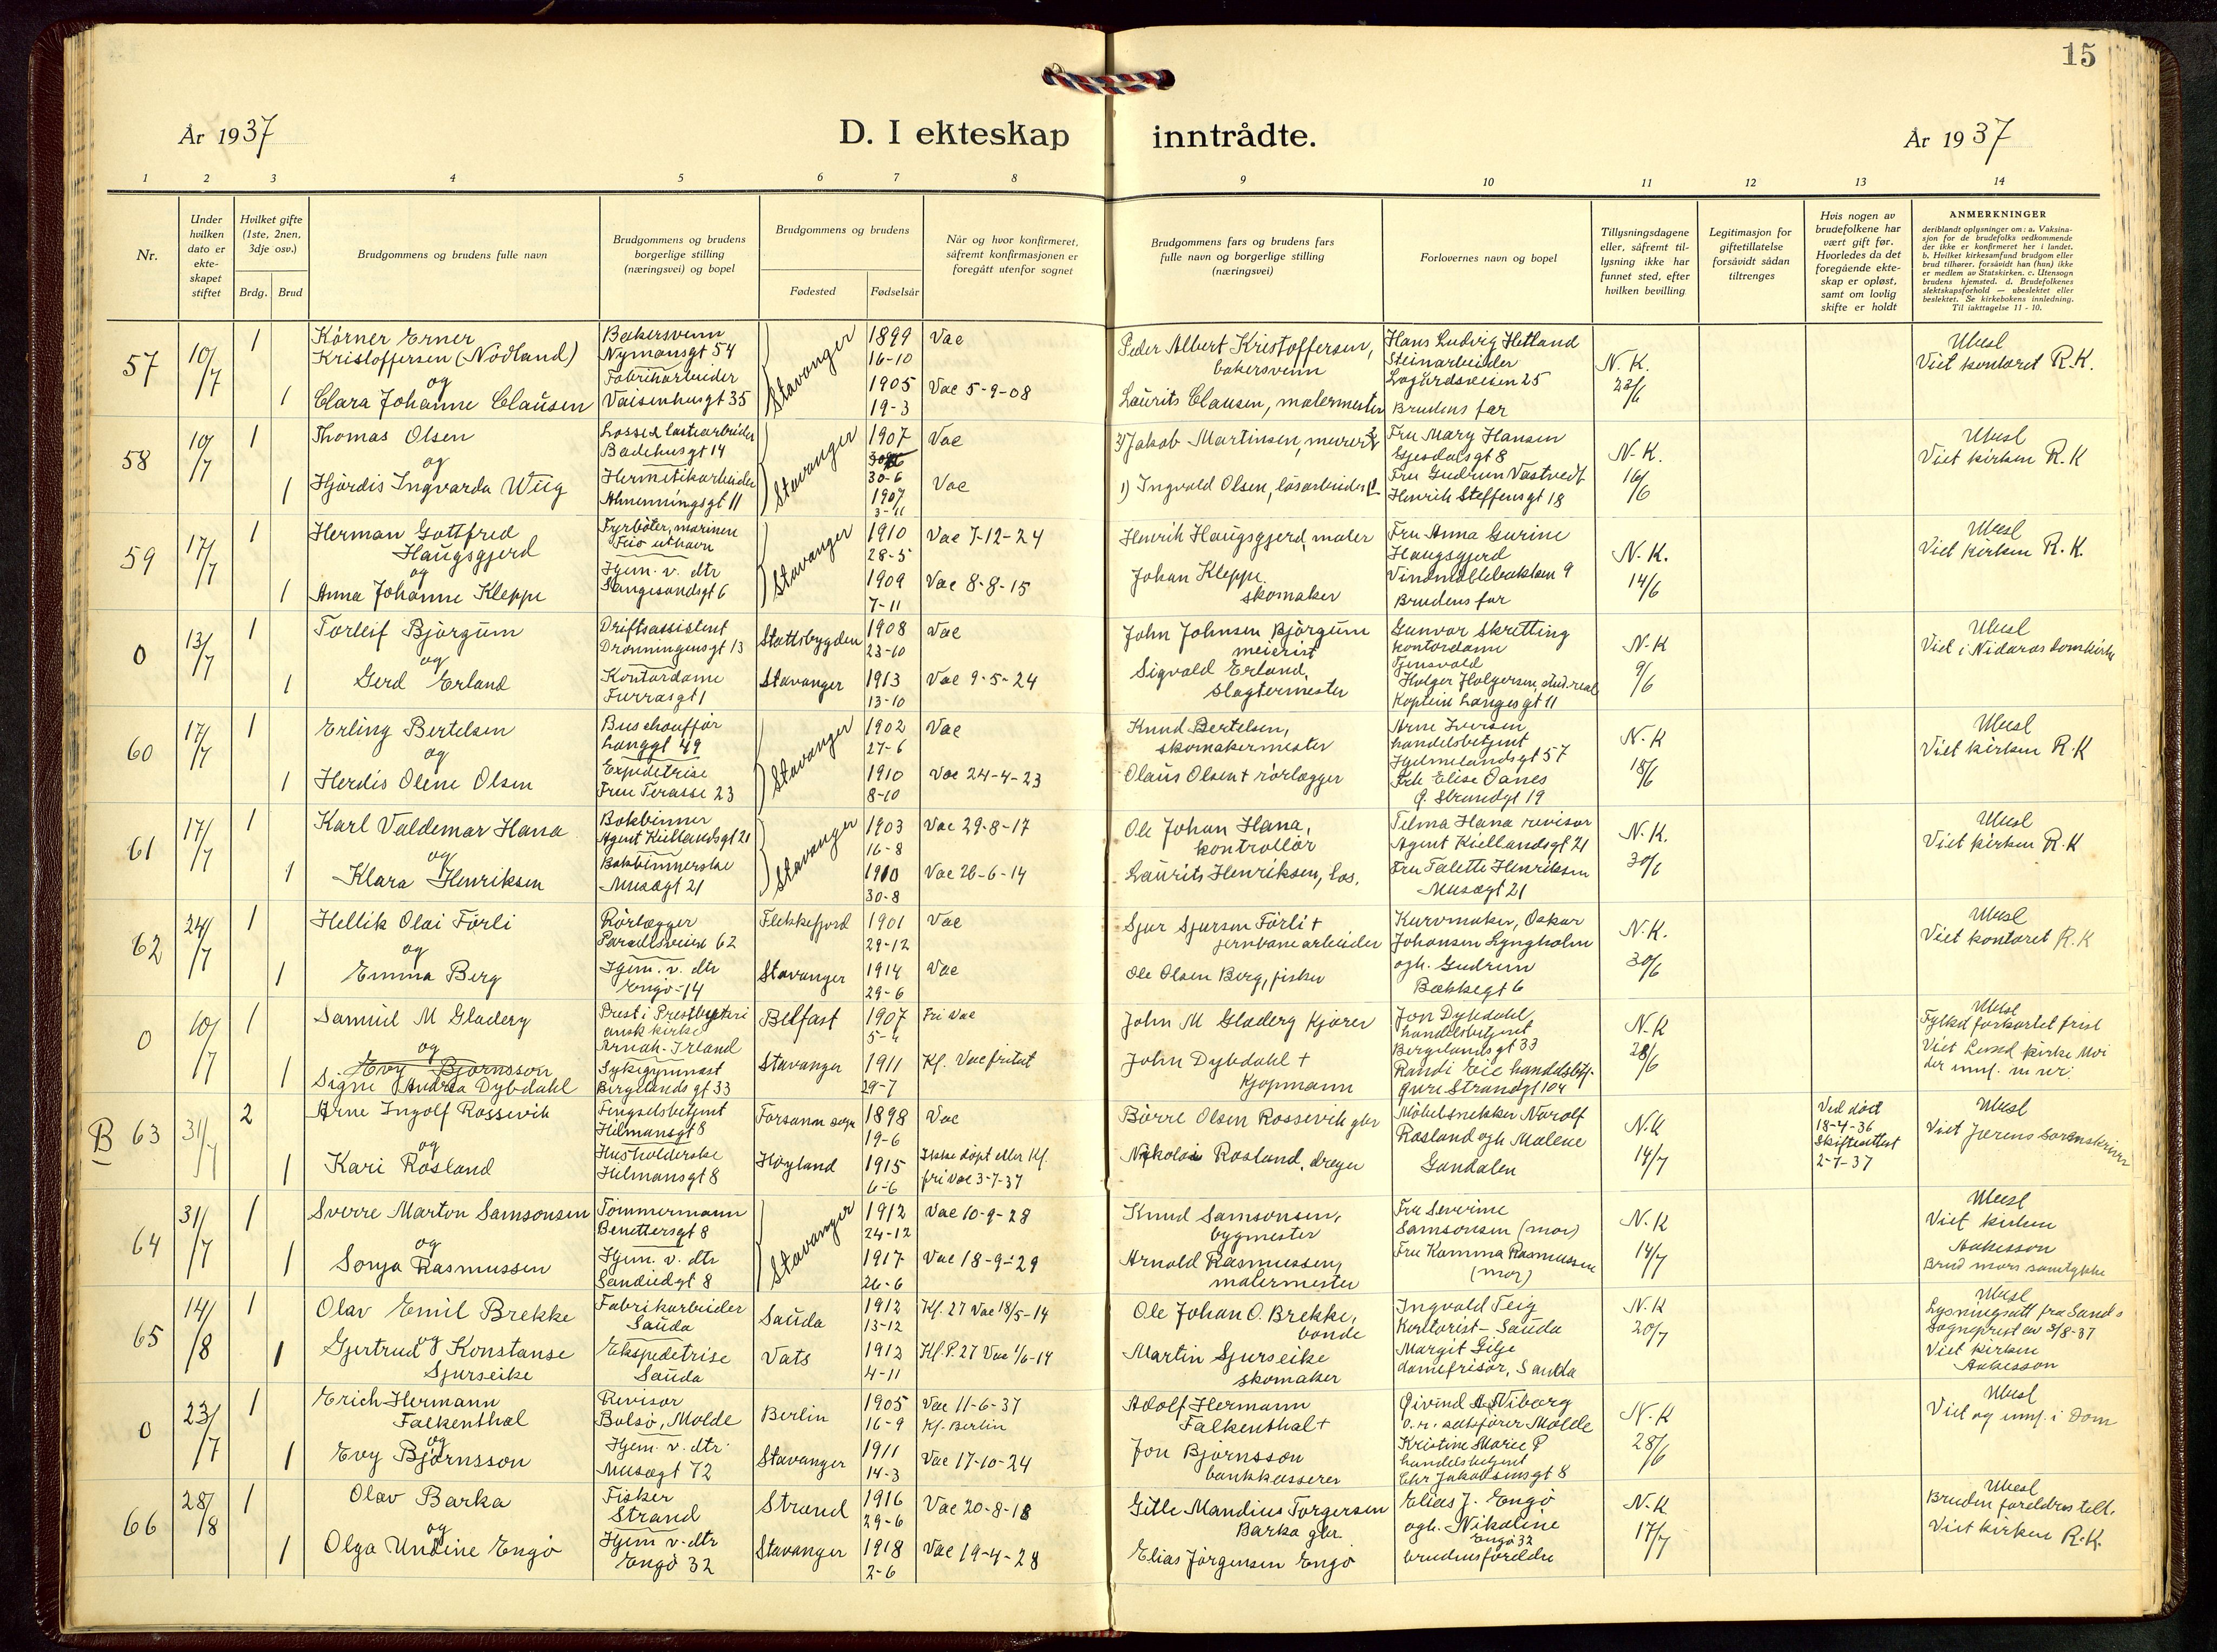 15
År 1937
D. I ekteskap inntrådte.
År 1937
1 2 3 4 5 6 7 8 9 10 11 12 13 14
Nr.
Under hvilken dato er ekte-skapet stiftet
Hvilket gifte (1ste, 2nen, 3dje osv.)
Brdg. Brud
Brudgommens og brudens fulle navn
Brudgommens og brudens borgerlige stilling (næringsvei) og bopel
Brudgommens og brudens
Fødested Fødselsår
Når og hvor konfirmeret, såfremt konfirmasjonen er foregått utenfor sognet
Brudgommens fars og brudens fars fulle navn og borgerlige stilling (næringsvei)
Forlovernes navn og bopel
Tillysningsdagene eller, såfremt til-lysning ikke har funnet sted, efter hvilken bevilling
Legitimasjon for giftetillatelse forsåvidt sådan tiltrenges
Hvis nogen av brudefolkene har vært gift før. Hvorledes da det foregående ekte-skap er opløst, samt om lovlig skifte er holdt
ANMERKNINGER
deriblandt oplysninger om: a. Vaksina-sjon for de brudefolks vedkommende der ikke er konfirmeret her i landet. b. Hvilket kirkesamfund brudgom eller brud tilhører, forsåvidt han (hun) ikke er medlem av Statskirken. c. Utensogn brudens hjemsted. d. Brudefolkenes slektskapsforhold — ubeslektet eller beslektet. Se kirkebokens innledning. Til iakttagelse 11 - 10.
57 10/7 1 Körner Erner
Kristoffersen (Nodland)
og
1 Clara Johanne Clausen
Bakersvenn
Nymansgt 54
Fabrikarbeider
Vaisenhusgt 35
Stavanger
1899
16-10
1905
19-3
Vac
Vac 5-9-08
Peder Albert Kristoffersen,
bakersvenn
Laurits Clausen, malermester
Hans Ludvig Hetland
Steinarbeider
Lagårdsveien 25
Brudens far
N. K.
22/6
Ubesl
Viet kontoret R.K.
58 10/7 1 Thomas Olsen
og
1 Hjördis Ingvarda Wiig
Losse & lastearbeider
Badehusgt 14
Hermetikarbeider
Stavanger
1907
30-6
1907
3-11
Vac
Vac
2) Jakob Martinsen, murer
1) Ingvald Olsen, løsarbeider
Fru Mary Hansen
Gjesdalsgt 8
Fru Gudrun Vastvedt
Henrik Steffensgt 18
N. K.
16/6
Ubesl
Viet kirken R.K
59 17/7 1 Herman Gottfred
Haugsgjerd
og
1 Anna Johanne Kleppe
Fyrbøter, marinen
Hjem. v. dtr
Langesundsgt 6
Stavanger
1910
28-5
1909
7-11
Vac 7-12-24
Vac 8-8-15
Henrik Haugsgjerd, maler
Johan Kleppe
skomaker
Fru Anna Gurine
Haugsgjerd
Vindmøllebakken 9
Brudens far
N. K.
14/6
Ubesl
Viet kirken R.K.
0 13/7 1 Torleif Björgum
og
1 Gerd Erland
Driftsassistent
Dronningensgt 13
Kontordame
Furrasgt 1
Stattsbygden
Stavanger
1908
23-10
1913
13-10
Vac
Vac 9-5-24
John Johnsen Björgum
meierist
Sigvald Erland,
slagtermester
Gunvor Skretting
kontordame
Tjensvold
Holger Holgersen, stud.real
Kaptein Langesgt 11
N-K
9/6
Ubesl
Viet i Nidaros domkirke
60 17/7 1 Erling Bertelsen
og
1 Herdis Olene Olsen
Buschauffør
Langgt 49
Expeditrise
Frue Terasse 23
Stavanger
1902
27-6
1910
8-10
Vac
Vac 24-4-23
Knud Bertelsen,
skomakermester
Olaus Olsen + rørlegger
Arne Iversen
handelsbetjent
Hjelmelandsgt 57
Frk Elise Oanes
Ø. Strandgt 19
N-K
18/6
Ubesl
Viet kirken R.K
61 17/7 1 Karl Valdemar Hana
og
1 Klara Henriksen
Bokbinner
Agent Kiellandsgt 21
Bokbinnerske
Musegt 21
Stavanger
1903
16-8
1910
30-8
Vac 29-8-17
Vac 26-6-14
Ole Johan Hana,
kontrollør
Laurits Henriksen, los.
Telma Hana revisor
Agent Kiellandsgt 21
Fru Talette Henriksen
Musegt 21
N. K.
30/6
Ubesl
Viet kirken R.K
62 24/7 1 Hellik Olai Förli
og
1 Emma Berg
Rørlegger
Paradisveien 62
Hjem. v. dtr
Engø-14
Flekkefjord
Stavanger
1901
29-12
1914
29-6
Vac
Vac
Sjur Sjursen Förli +
jernbanearbeider
Ole Olsen Berg, fisker
Kurvmaker, Oskar
Johansen Lyngholm
ogh. Gudrun
Bækkegt 6
N. K.
30/6
Ubesl
Viet kontoret R.K
0 10/7 1 Samuel M Gladery
og
Evy Bjørnsson
1 Signe Andrea Dybdahl
Prest i Presbyteri
ansk kirke
Sykegymnast
Bergelands gt 33
Belfast
Stavanger
1907
5-4
1911
29-7
Fri Vac
Kf. Vac fritat
John M Gladery Kjører
John Dybdahl +
Kjøpmann
Jon Dybdahl
handelsbetjent
Bergelandsgt 33
Randi Eie handelsbtj.
Øvre Strandgt 104
N.K
28/6
Ubesl
B 63 31/7 2 Arne Ingolf Rossevik
og
1 Kari Rosland
Fengselsbetjent
Hilmansgt 8
Husholderske
Hilmansgt 8
Forsann sogn
Høyland
1898
19-6
1915
6-6
Vac
Ikke døpt eller Kf.
fri Vac 3-7-37
Börre Olsen Rossevik gbr
Nikolai Rosland, dreyer
Møbelsnekker Narolf
Rosland ogh Malene
Gandalen
N.K
14/7
Ved død
18-4-36
Skifteattest
2-7-37
Ubesl
Viet Jærens Sorenskriver
64 31/7 1 Sverre Marton Samsonsen
og
1 Sonja Rasmussen
Tømmermann
Benettersgt 8
Hjem. v. dtr
Sandiedgt 8
Stavanger
1912
24-12
1917
26-6
Vac 10-9-28
Vac 18-9-29
Knud Samsonsen,
bygmester
Arnold Rasmussen,
malermester
Fru Severine
Samsonsen (mor)
Fru Kamma Rasmussen
(mor)
N.K
14/7
Ubesl
Viet kirken
Aakesson
Brud mors samtykke
65 14/8 1 Olav Emil Brekke
og
1 Gjertrud Konstanse
Sjurseike
Fabrikarbeider
Sauda
Ekspeditrise
Sauda
Sauda
Vats
1912
13-12
1912
4-11
Kf. 27 Vac 18/5-14
Kf. P. 27 Vac 1/6-14
Ole Johan O. Brekke,
bonde
Martin Sjurseike
skomaker
Ingvald Teig
Kontorist - Sauda
Margit Gilje
damefrisør, Sauda
N.K
20/7
Ubesl
Lysningsatt fra Sands
Sogneprest av 3/8-37
Viet kirken
Aakesson
0 23/7 1 Erich Hermann
Falkenthal
og
1 Evy Björnsson
Revisor
Bolsø, Molde
Hjem. v. dtr
Musegt 72
Berlin
Stavanger
1905
16-9
1911
14-3
Vac 11-6-37
Kf. Berlin
Vac 17-10-24
Adolf Hermann
Falkenthal +
Jon Björnsson
bankkasserer
Øivind A. Wiborg
o.r. sakfører Molde
Kristine Marie P
handelsbetjent
Chr Jakobsensgt 8
N.K
28/6
Ubesl
Viet og innf. i Dom
66 28/8 1 Olav Barka
og
1 Olga Undine Engø
Fisker
Strand
Hjem v. dtr
Engø 32
Strand
Stavanger
1916
29-6
1918
2-6
Vac 20-8-18
Vac 19-4-28
Gitle Mandius Torgersen
Barka gbr.
Elias Jørgensen Engø
Elias J. Engø
ogh. Nikoline
Engø 32
brudens foreldre
N.K
17/7
Ubesl
Bruden foreldres till.
Viet kirken R.K.